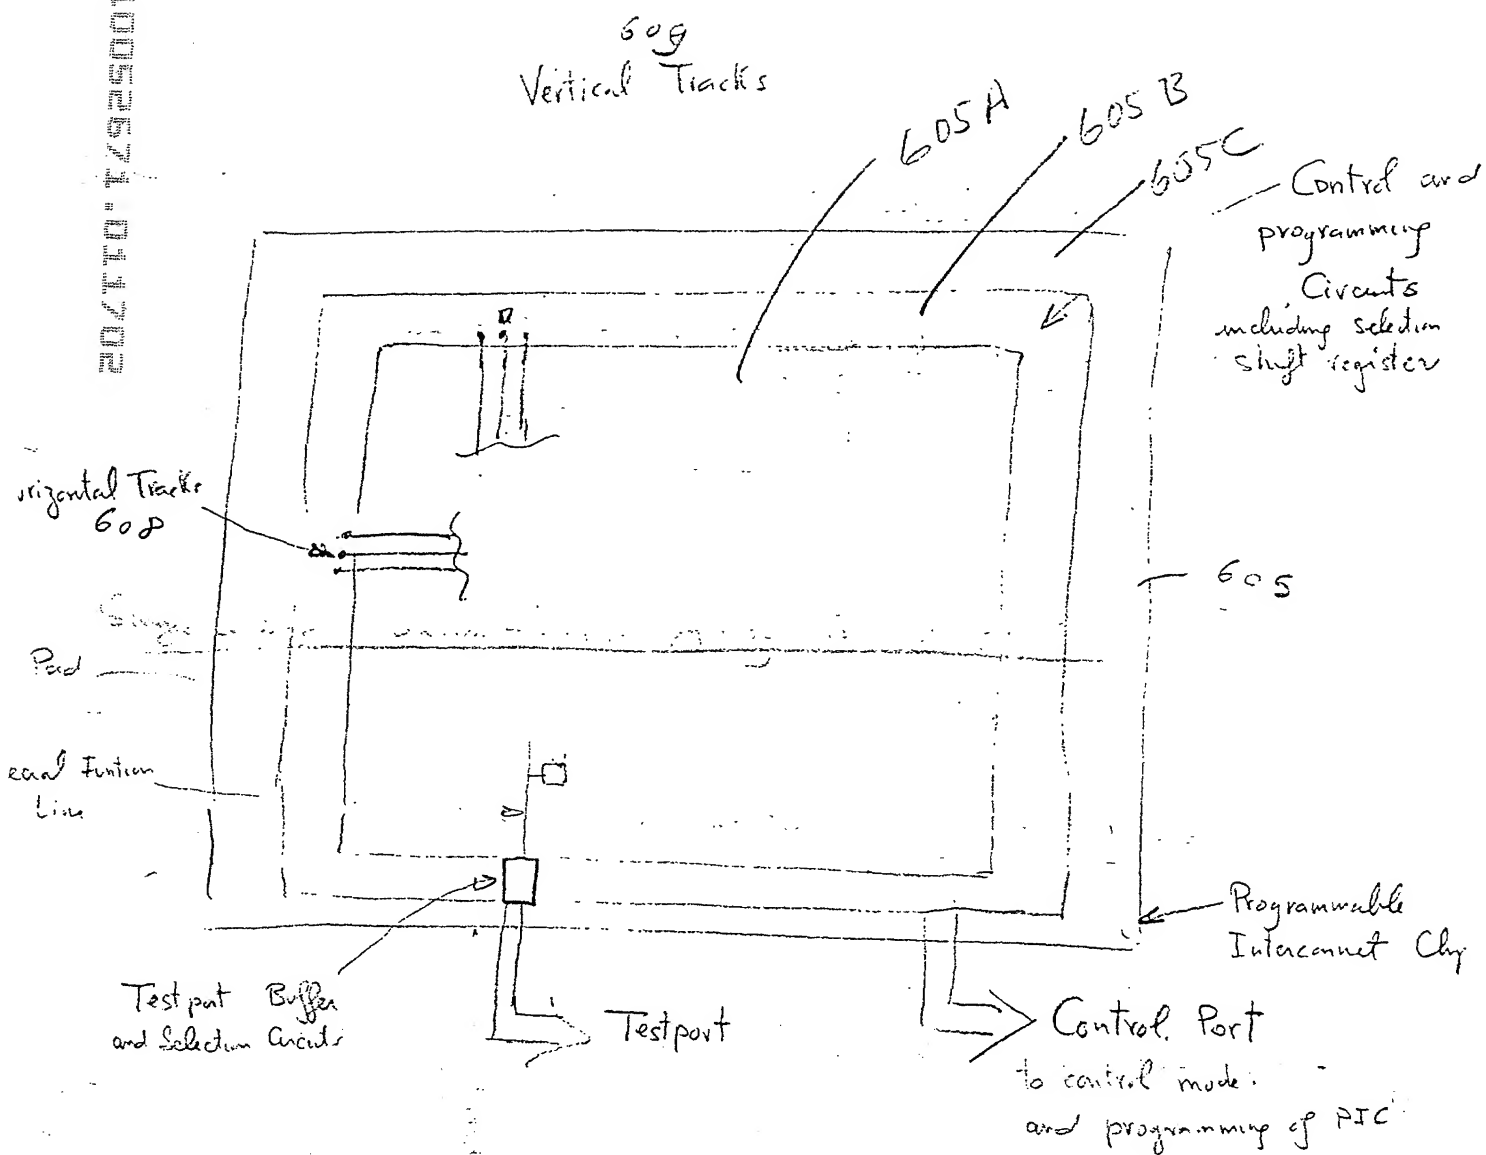 10052671.011702
609
Vertical Tracks
605A
605B
605C
Control and
programming
Circuits
including selection
shift register
rizontal Tracks
608
605
Pad
Line
Programmable
Interconnect Chip
Testport Buffer
and Selection Circuits
Testport
Control Port
to control mode
and programming of PIC